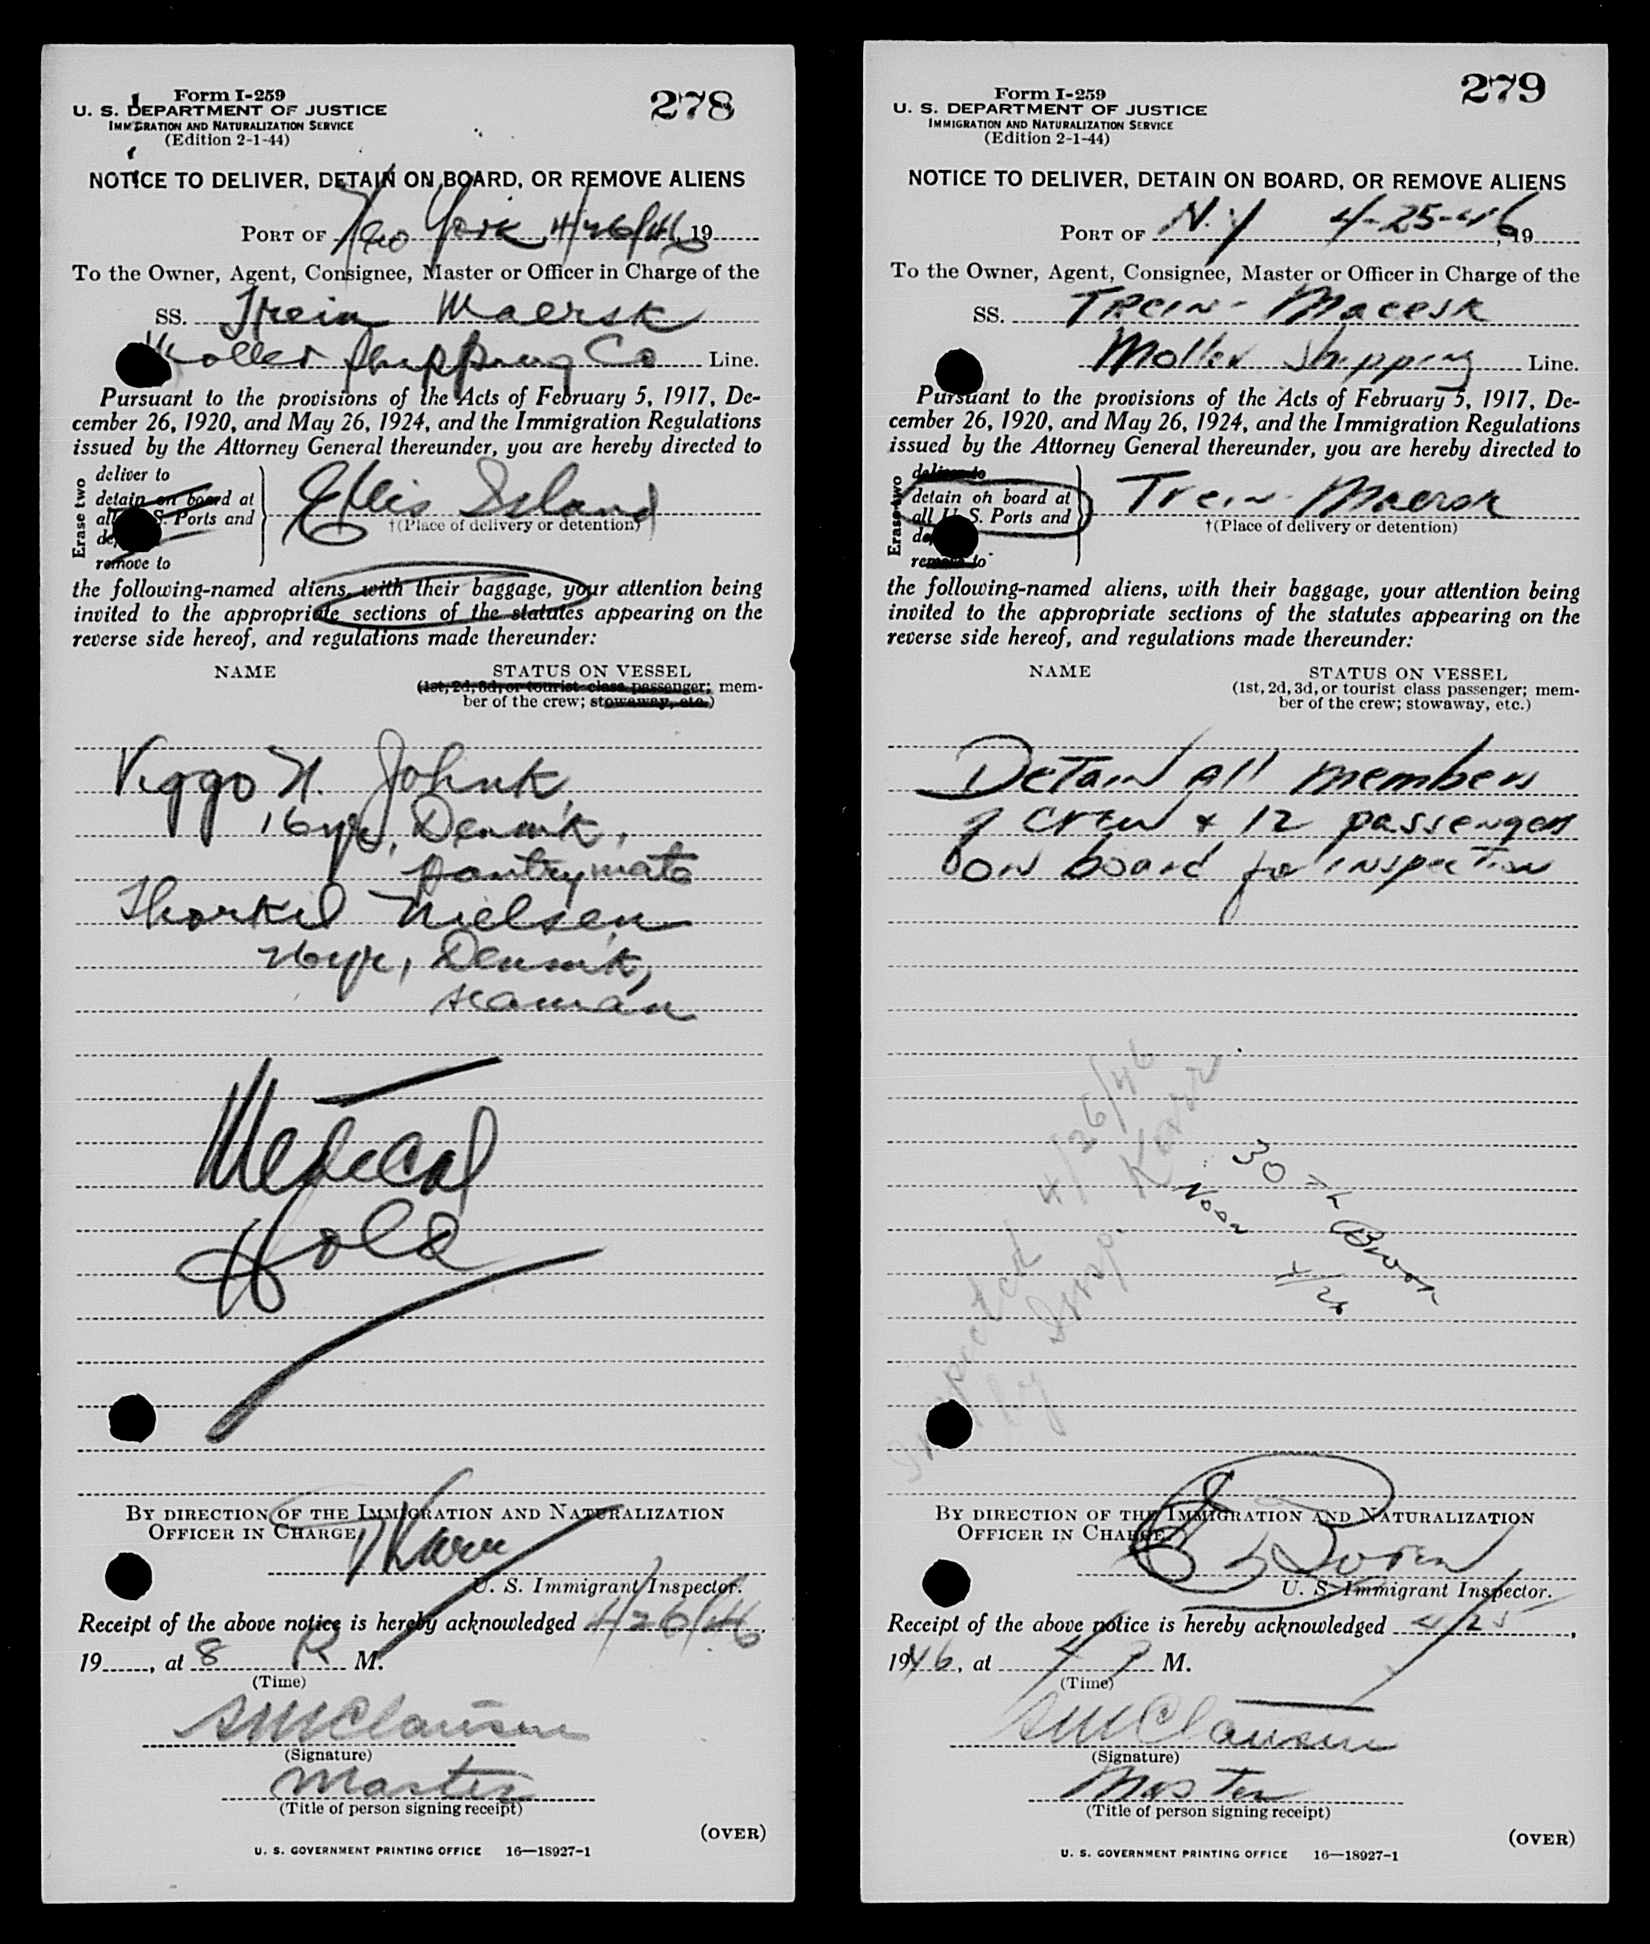 Form I-259
U. S. DEPARTMENT OF JUSTICE
IMMIGRATION AND NATURALIZATION SERVICE
(Edition 2-1-44)
278
NOTICE TO DELIVER, DETAIN ON BOARD, OR REMOVE ALIENS
PORT OF New York, 4/26/46, 19
To the Owner, Agent, Consignee, Master or Officer in Charge of the
SS. Trein Maersk
Moller Shipping Co Line.
Pursuant to the provisions of the Acts of February 5, 1917, De-
cember 26, 1920, and May 26, 1924, and the Immigration Regulations
issued by the Attorney General thereunder, you are hereby directed to
Erase two
deliver to
detain on board at
all U. S. Ports and
remove to
Ellis Island
†(Place of delivery or detention)
the following-named aliens, with their baggage, your attention being
invited to the appropriate sections of the statutes appearing on the
reverse side hereof, and regulations made thereunder:
NAME STATUS ON VESSEL
(1st, 2d, 3d, or tourist class passenger; mem-
ber of the crew; stowaway, etc.)
Viggo N. Johnk,
16yr, Denm'k,
pantrymate
Thorkil Nielsen
26yr, Denm'k,
seaman
Medical
Hold
BY DIRECTION OF THE IMMIGRATION AND NATURALIZATION
OFFICER IN CHARGE,
Karr
U. S. Immigrant Inspector.
Receipt of the above notice is hereby acknowledged 4/26/46,
19, at 8 M.
(Time)
SMClausen
(Signature)
Master
(Title of person signing receipt)
(OVER)
U. S. GOVERNMENT PRINTING OFFICE 16—18927-1
Form I-259
U. S. DEPARTMENT OF JUSTICE
IMMIGRATION AND NATURALIZATION SERVICE
(Edition 2-1-44)
279
NOTICE TO DELIVER, DETAIN ON BOARD, OR REMOVE ALIENS
PORT OF N.Y 4-25-46, 19
To the Owner, Agent, Consignee, Master or Officer in Charge of the
SS. Trein- Maersk
Moller Shipping Line.
Pursuant to the provisions of the Acts of February 5, 1917, De-
cember 26, 1920, and May 26, 1924, and the Immigration Regulations
issued by the Attorney General thereunder, you are hereby directed to
Erase two
deliver to
detain on board at
all U. S. Ports and
remove to
Trein- Maersk
†(Place of delivery or detention)
the following-named aliens, with their baggage, your attention being
invited to the appropriate sections of the statutes appearing on the
reverse side hereof, and regulations made thereunder:
NAME STATUS ON VESSEL
(1st, 2d, 3d, or tourist class passenger; mem-
ber of the crew; stowaway, etc.)
Detain all members
of crew + 12 passengers
on board for inspection
Inspected 4/26/46
by Insp. Karr
30th
Noon
BY DIRECTION OF THE IMMIGRATION AND NATURALIZATION
OFFICER IN CHARGE,
U. S. Immigrant Inspector.
Receipt of the above notice is hereby acknowledged 4/25,
1946, at 4 P M.
(Time)
SMClausen
(Signature)
Master
(Title of person signing receipt)
(OVER)
U. S. GOVERNMENT PRINTING OFFICE 16—18927-1